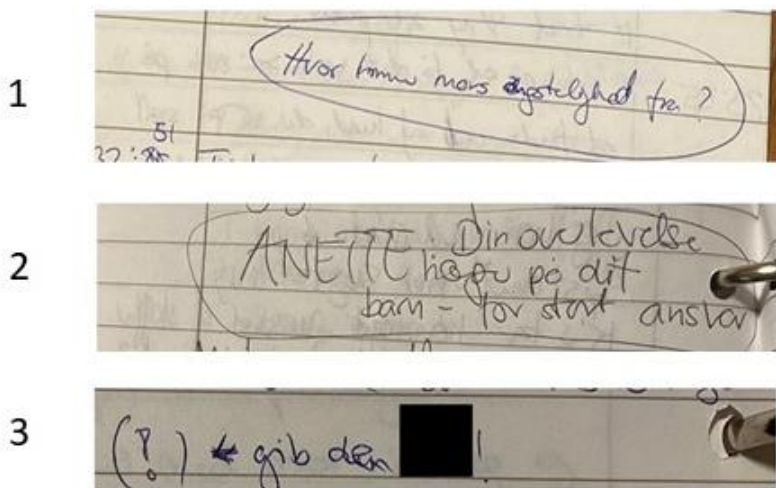 1
Hvor kommer mors ængstelighed fra?
51
37:
2
ANETTE: Din overlevelse
hviler på dit
barn - for stort ansvar
3
(!) ← grib den !